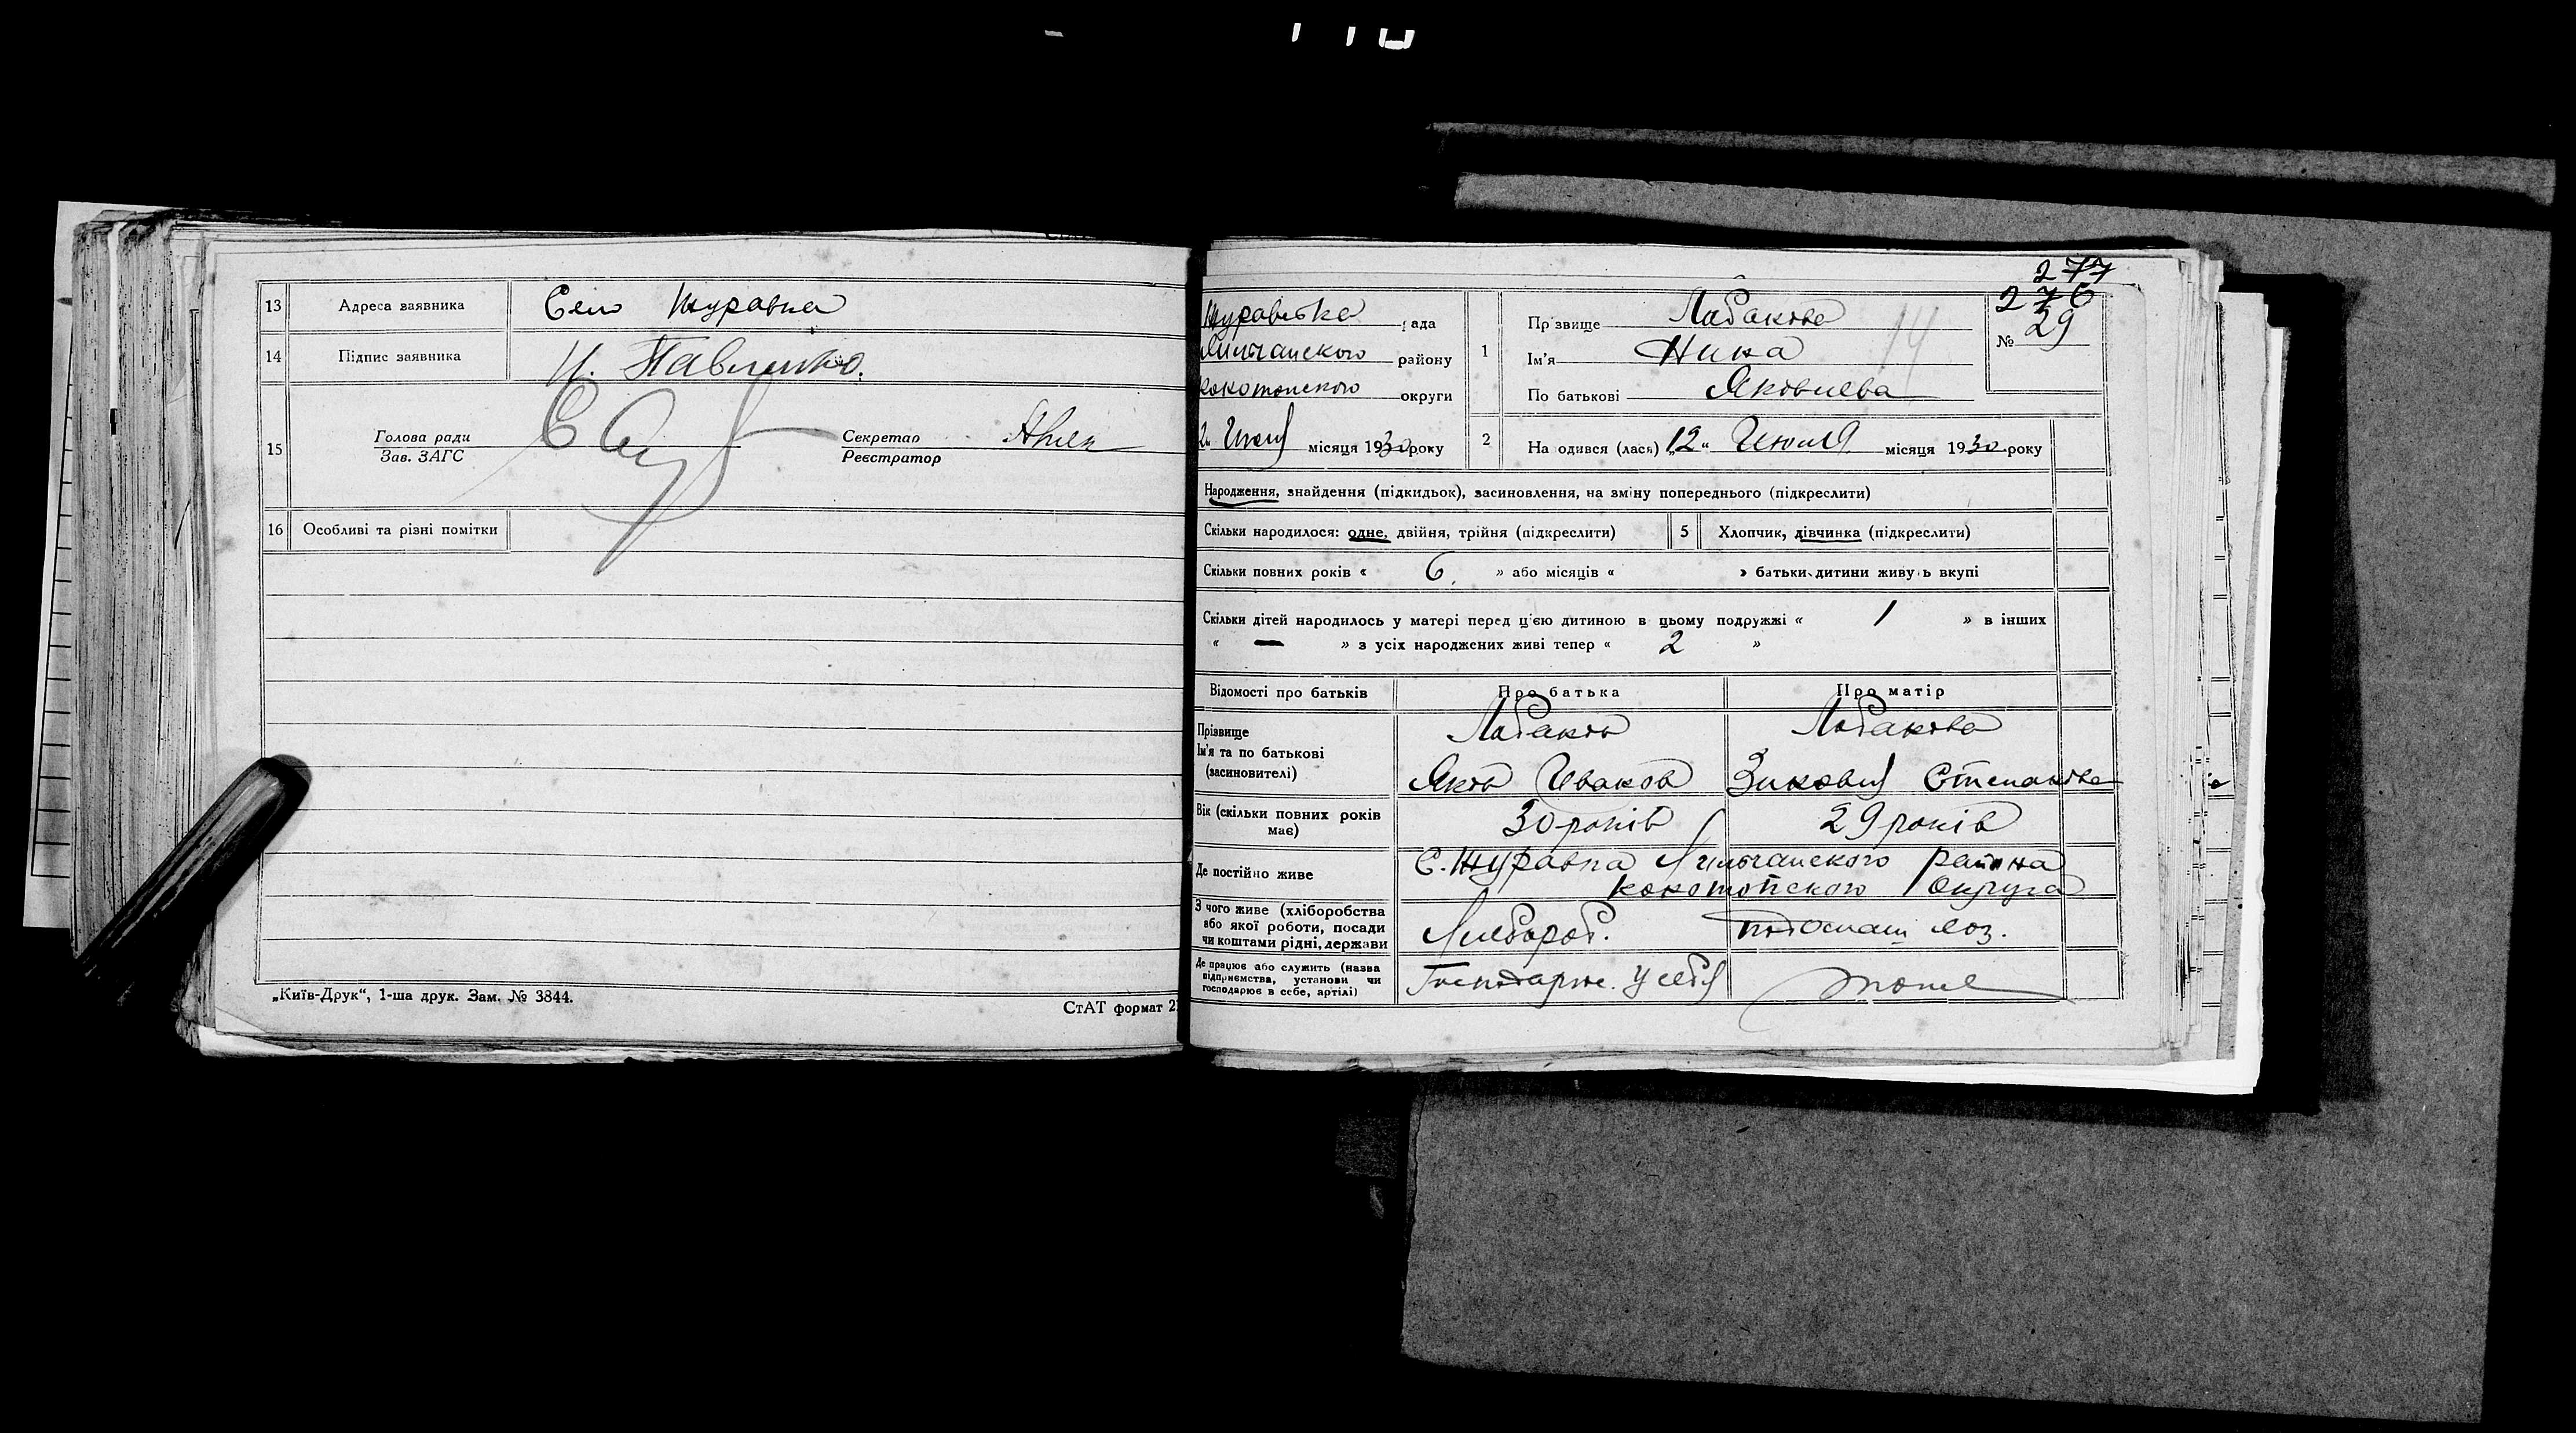 13 Адреса заявника Село Журавка
14 Підпис заявника И. Павленко.
15 Голова ради
Зав. ЗАГС
Секретар
Реєстратор
16 Особливі та різні помітки
„Київ-Друк“, 1-ша друк. Зам. № 3844.
СтАТ формат 2
277
276
№ 29
Журавська рада
району
Конотопского округи
2 Июля місяця 1930 року
1 Прізвище Лобакова
Ім'я Нина
По батькові Яковлева
14
2 На одився (лась) „12“ Июля місяця 1930 року
Народження, знайдення (підкидьок), засиновлення, на зміну попереднього (підкреслити)
Скільки народилося: одне, двійня, трійня (підкреслити) 5 Хлопчик, дівчинка (підкреслити)
Скільки повних років « 6. » або місяців « » батьки дитини живуть вкупі
Скільки дітей народилось у матері перед цією дитиною в цьому подружжі « 1 » в інших
« — » з усіх народжених живі тепер « 2 »
Відомості про батьків Про батька Про матір
Прізвище
Ім'я та по батькові
(засиновителі)
Лобаков Лобакова
Яков Иванов Зиновия Степанова
Вік (скільки повних років
має)
30 років 29 років
Де постійно живе С. Журавка района
Конотопского Округа
З чого живе (хліборобства
або якої роботи, посади
чи коштами рідні, держави
Хлебороб.
Де працює або служить (назва
підприємства, установи чи
господарює в себе, артілі)
Господарює. у себя тоже